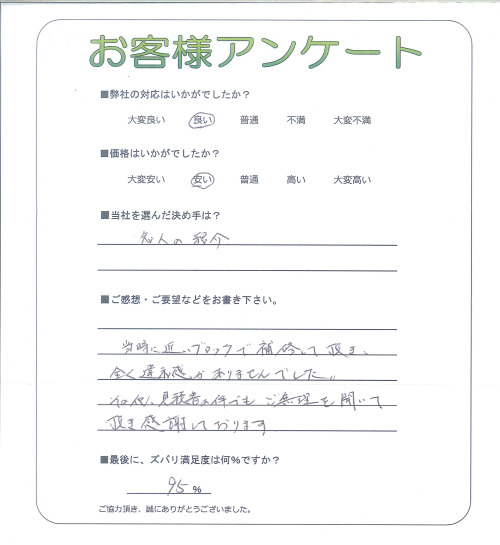 お客様アンケート
■弊社の対応はいかがでしたか？
大変良い 良い 普通 不満 大変不満
■価格はいかがでしたか？
大変安い 安い 普通 高い 大変高い
■当社を選んだ決め手は？
知人の紹介
■ご感想・ご要望などをお書き下さい。
当時に近いブロックで補修して頂き、
全く違和感がありませんでした。
その他、見積書の件でもご無理を聞いて
頂き感謝しております
■最後に、ズバリ満足度は何%ですか？
95 %
ご協力頂き、誠にありがとうございました。